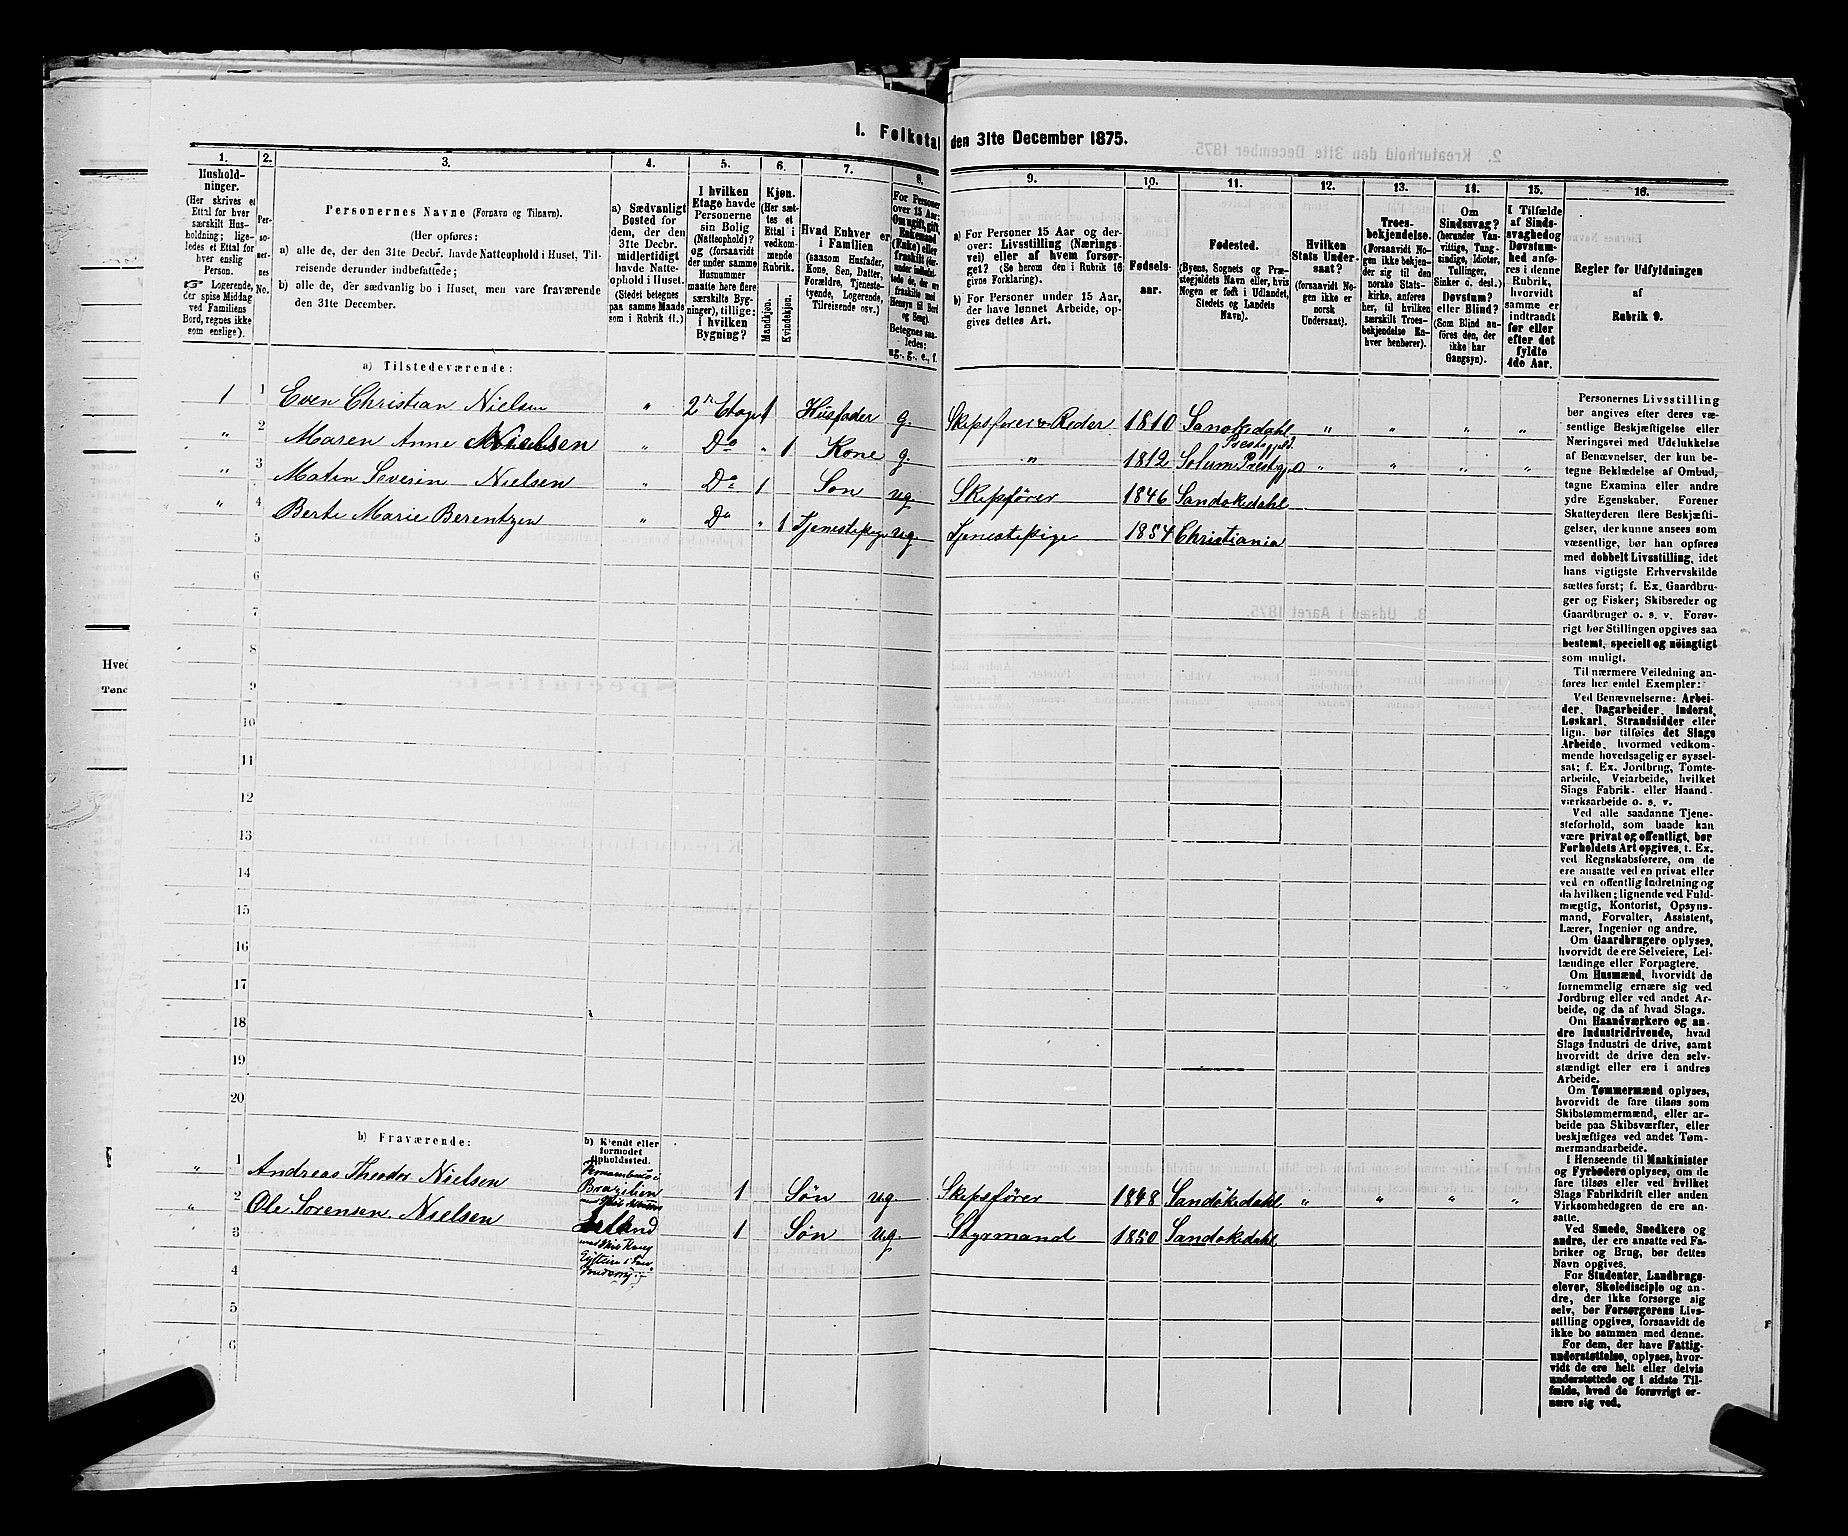 I. Folketal den 31te December 1875.
1. 2. 3. 4. 5. 6. 7. 8. 9. 10. 11. 12. 13. 14. 15. 16.
Hushold-
ninger.
(Her skrives et
Ettal for hver
særskilt Hus-
holdning; lige-
ledes et Ettal for
hver enslig
Person.
☞ Logerende,
der spise Middag
ved Familiens
Bord, regnes ikke
som enslige).
Per-
so-
ner-
nes
No.
Personernes Navne (Fornavn og Tilnavn).
(Her opføres:
a) alle de, der den 31te Decbr. havde Natteophold i Huset, Til-
reisende derunder indbefattede;
b) alle de, der sædvanlig bo i Huset, men vare fraværende
den 31te December.
a) Sædvanligt
Bosted for
dem, der den
31te Decbr.
midlertidigt
havde Natte-
ophold i Huset.
(Stedet betegnes
paa samme Maade
som i Rubrik 11.)
I hvilken
Etage havde
Personerne
sin Bolig
(Natteophold)?
og (forsaavidt
der under samme
Husnummer
maatte høre flere
særskilte Byg-
ninger), tillige:
i hvilken
Bygning?
Kjøn.
(Her sæt-
tes et
Ettal i
vedkom-
mende
Rubrik.
Mandkjøn.
Kvindekjøn.
Hvad Enhver er
i Familien
(saasom Husfader,
Kone, Søn, Datter,
Forældre, Tjeneste-
tyende, Logerende,
Tilreisende osv.)
For Personer
over 15 Aar:
Om ugift, gift,
Enkemand
(Enke) eller
fraskilt
Betegnes saa-
ledes:
ug., g., e., f.
a) For Personer 15 Aar og der-
over: Livsstilling (Nærings-
vei) eller af hvem forsør-
get? (Se herom den i Rubrik 16
givne Forklaring).
b) For Personer under 15 Aar,
der have lønnet Arbeide, op-
gives dettes Art.
Fødsels-
aar.
Fødested.
(Byens, Sognets og Præ-
stegjeldets Navn eller, hvis
Nogen er født i Udlandet,
Stedets og Landets
Navn).
Hvilken
Stats Under-
saat?
(forsaavidt No-
gen ikke er
norsk
Undersaat).
Troes-
bekjendelse.
(Forsaavidt No-
gen ikke bekjen-
der sig til den
norske Stats-
kirke, anføres
her, til hvilken
særskilt Troes-
bekjendelse En-
hver henhører).
Om
Sindssvag?
(herunder Van-
vittige, Tung-
sindige, Idioter,
Tullinger,
Sinker o. desl.)
Døvstum?
eller Blind?
(Som Blind an-
føres den, der
ikke har
Gangsyn).
I Tilfælde
af Sinds-
svaghed og
Døvstum-
hed anfø-
res i denne
Rubrik,
hvorvidt
samme er
indtraadt
før eller
efter det
fyldte
4de Aar.
Regler for Udfyldningen
af
Rubrik 9.
a) Tilstedeværende:
1 1 Even Christian Nielsen " 2n Etage 1 Husfader g. Skipsfører & Reder 1810 Sanökedahl Prestegjeld. " " " "
" 2 Maren Anne Nielsen " Do " 1 Kone g. " 1812 Solum Prestgj " " " "
" 3 Matin Severin Nielsen " Do 1 Søn ug. Skipsfører 1846 Sandökedahl
" 4 Berte Marie Berentzen " Do " 1 Tjenestepige ug. Tjenestepige 1854 Christiania
5
6
7
8
9
10
11
12
13
14
15
16
17
18
19
20
b) Fraværende:
b) Kjendt eller
formodet
Opholdssted.
" 1 Andreas Theodor Nielsen Brazilien 1 Søn ug. Skipsfører 1848 Sandökedahl " " " "
" 2 Ole Sørensen Nielsen 1 Søn ug. Styrmand 1850 Sandökedahl
3
4
5
6
Personernes Livsstilling
bør angives efter deres væ-
sentlige Beskjæftigelse eller
Næringsvei med Udelukkelse
af Benævnelser, der kun be-
tegne Beklædelse af Ombud,
tagne Examina eller andre
ydre Egenskaber. Forener
Skatteyderen flere Beskjæfti-
gelser, der kunne ansees som
væsentlige, bør han opføres
med dobbelt Livsstilling, idet
hans vigtigste Erhvervskilde
sættes først; f. Ex. Gaardbru-
ger og Fisker; Skibsreder og
Gaardbruger o. s. v. Forøv-
rigt bør Stillingen opgives saa
bestemt, specielt og nøiagtigt
som muligt.
Til nærmere Veiledning an-
føres her endel Exempler:
Ved Benævnelserne: Arbei-
der, Dagarbeider, Inderst,
Løskarl, Strandsidder eller
lign. bør tilføies det Slags
Arbeide, hvormed vedkom-
mende hovedsagelig er syssel-
sat; f. Ex. Jordbrug, Tomte-
arbeide, Veiarbeide, hvilket
Slags Fabrik- eller Haand-
værksarbeide o. s. v.
Ved alle saadanne Tjene-
steforhold, som baade kan
være privat og offentligt, bør
Forholdets Art opgives, t. Ex.
ved Regnskabsførere, om de
ere ansatte ved en privat eller
ved en offentlig Indretning og
da hvilken; lignende ved Fuld-
mægtig, Kontorist, Opsyns-
mand, Forvalter, Assistent,
Lærer, Ingeniør og andre.
Om Gaardbrugere oplyses,
hvorvidt de ere Selveiere, Lei-
lændinge eller Forpagtere.
Om Husmænd, hvorvidt de
fornemmelig ernære sig ved
Jordbrug eller ved andet Ar-
beide, og da af hvad Slags.
Om Haandværkere og an-
dre Industridrivende, hvad
Slags Industri de drive, samt
hvorvidt de drive den selv-
stændigt eller ere i andres
Arbeide.
Om Tømmermænd oplyses,
hvorvidt de fare tilsøs som
Skibstømmermænd, eller ar-
beide paa Skibsværfter, eller
beskjæftiges ved andet Tøm-
mermandsarbeide.
I Henseende til Maskinister
og Fyrbødere oplyses, om de
fare tilsøs eller ved hvilket
Slags Fabrikdrift eller anden
Virksomhedsgren de ere an-
satte.
Ved Smede, Snedkere og
andre, der ere ansatte ved Fa-
briker og Brug, bør dettes
Navn opgives.
For Studenter, Landbrugs-
elever, Skoledisciple og an-
dre, der ikke forsørge sig
selv, bør Forsørgerens Livs-
stilling opgives, forsaavidt de
ikke bo sammen med denne.
For dem, der have Fattig-
understøttelse, oplyses, hvor-
vidt de ere helt eller delvis
understøttede og i sidste Til-
fælde, hvad de forøvrigt er-
nære sig ved.
Hved
Tønd